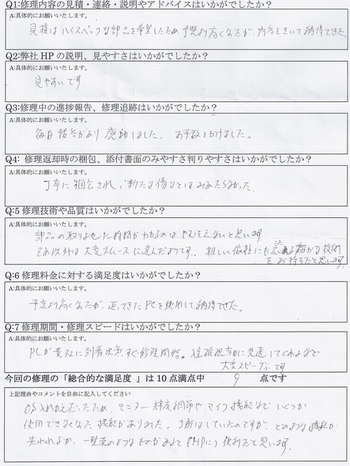 Q1:修理内容の見積・連絡・説明やアドバイスはいかがでしたか?
A:具体的にお願いいたします。
見積はハイスペックな部品を希望したため予想より高くなったが、内容をきいて納得できた。
Q2:弊社HPの説明、見やすさはいかがでしたか?
A:具体的にお願いいたします。
見やすいです
Q3:修理中の進捗報告、修理追跡はいかがでしたか?
A:具体的にお願いいたします。
毎日報告があり感動しました。お手数をかけました。
Q4: 修理返却時の梱包、添付書面のみやすさ判りやすさはいかがでしたか?
A:具体的にお願いいたします。
丁寧に梱包され、新たな傷などはみあたらなかった。
Q:5修理技術や品質はいかがでしたか?
A:具体的にお願いいたします。
部品の取りよせに時間がかかるのはやむをえないと思います。
それ以外は大変スムースに進んだようです。難しい依頼にも
をお持ちだと思います。
Q:6修理料金に対する満足度はいかがでしたか?
A:具体的にお願いいたします。
予定より高くなったが、返ってきたPCを使用して納得できた。
Q:7修理期間・修理スピードはいかがでしたか?
A:具体的にお願いいたします。
PCが貴社に到着次第すぐ修理開始。進捗も
大変スピーディです
今回の修理の「総合的な満足度」は10点満点中 9 点です
上記理由やコメントを自由に記入してください
OS入れかえだったため、モニター輝度調節やマイク接続などいくつか
使用できなくなった機能がありました。予期はしていたのですが、どのような機能が
失われるか、一覧表のようなものがあるとHPにつ 便利だと思います。